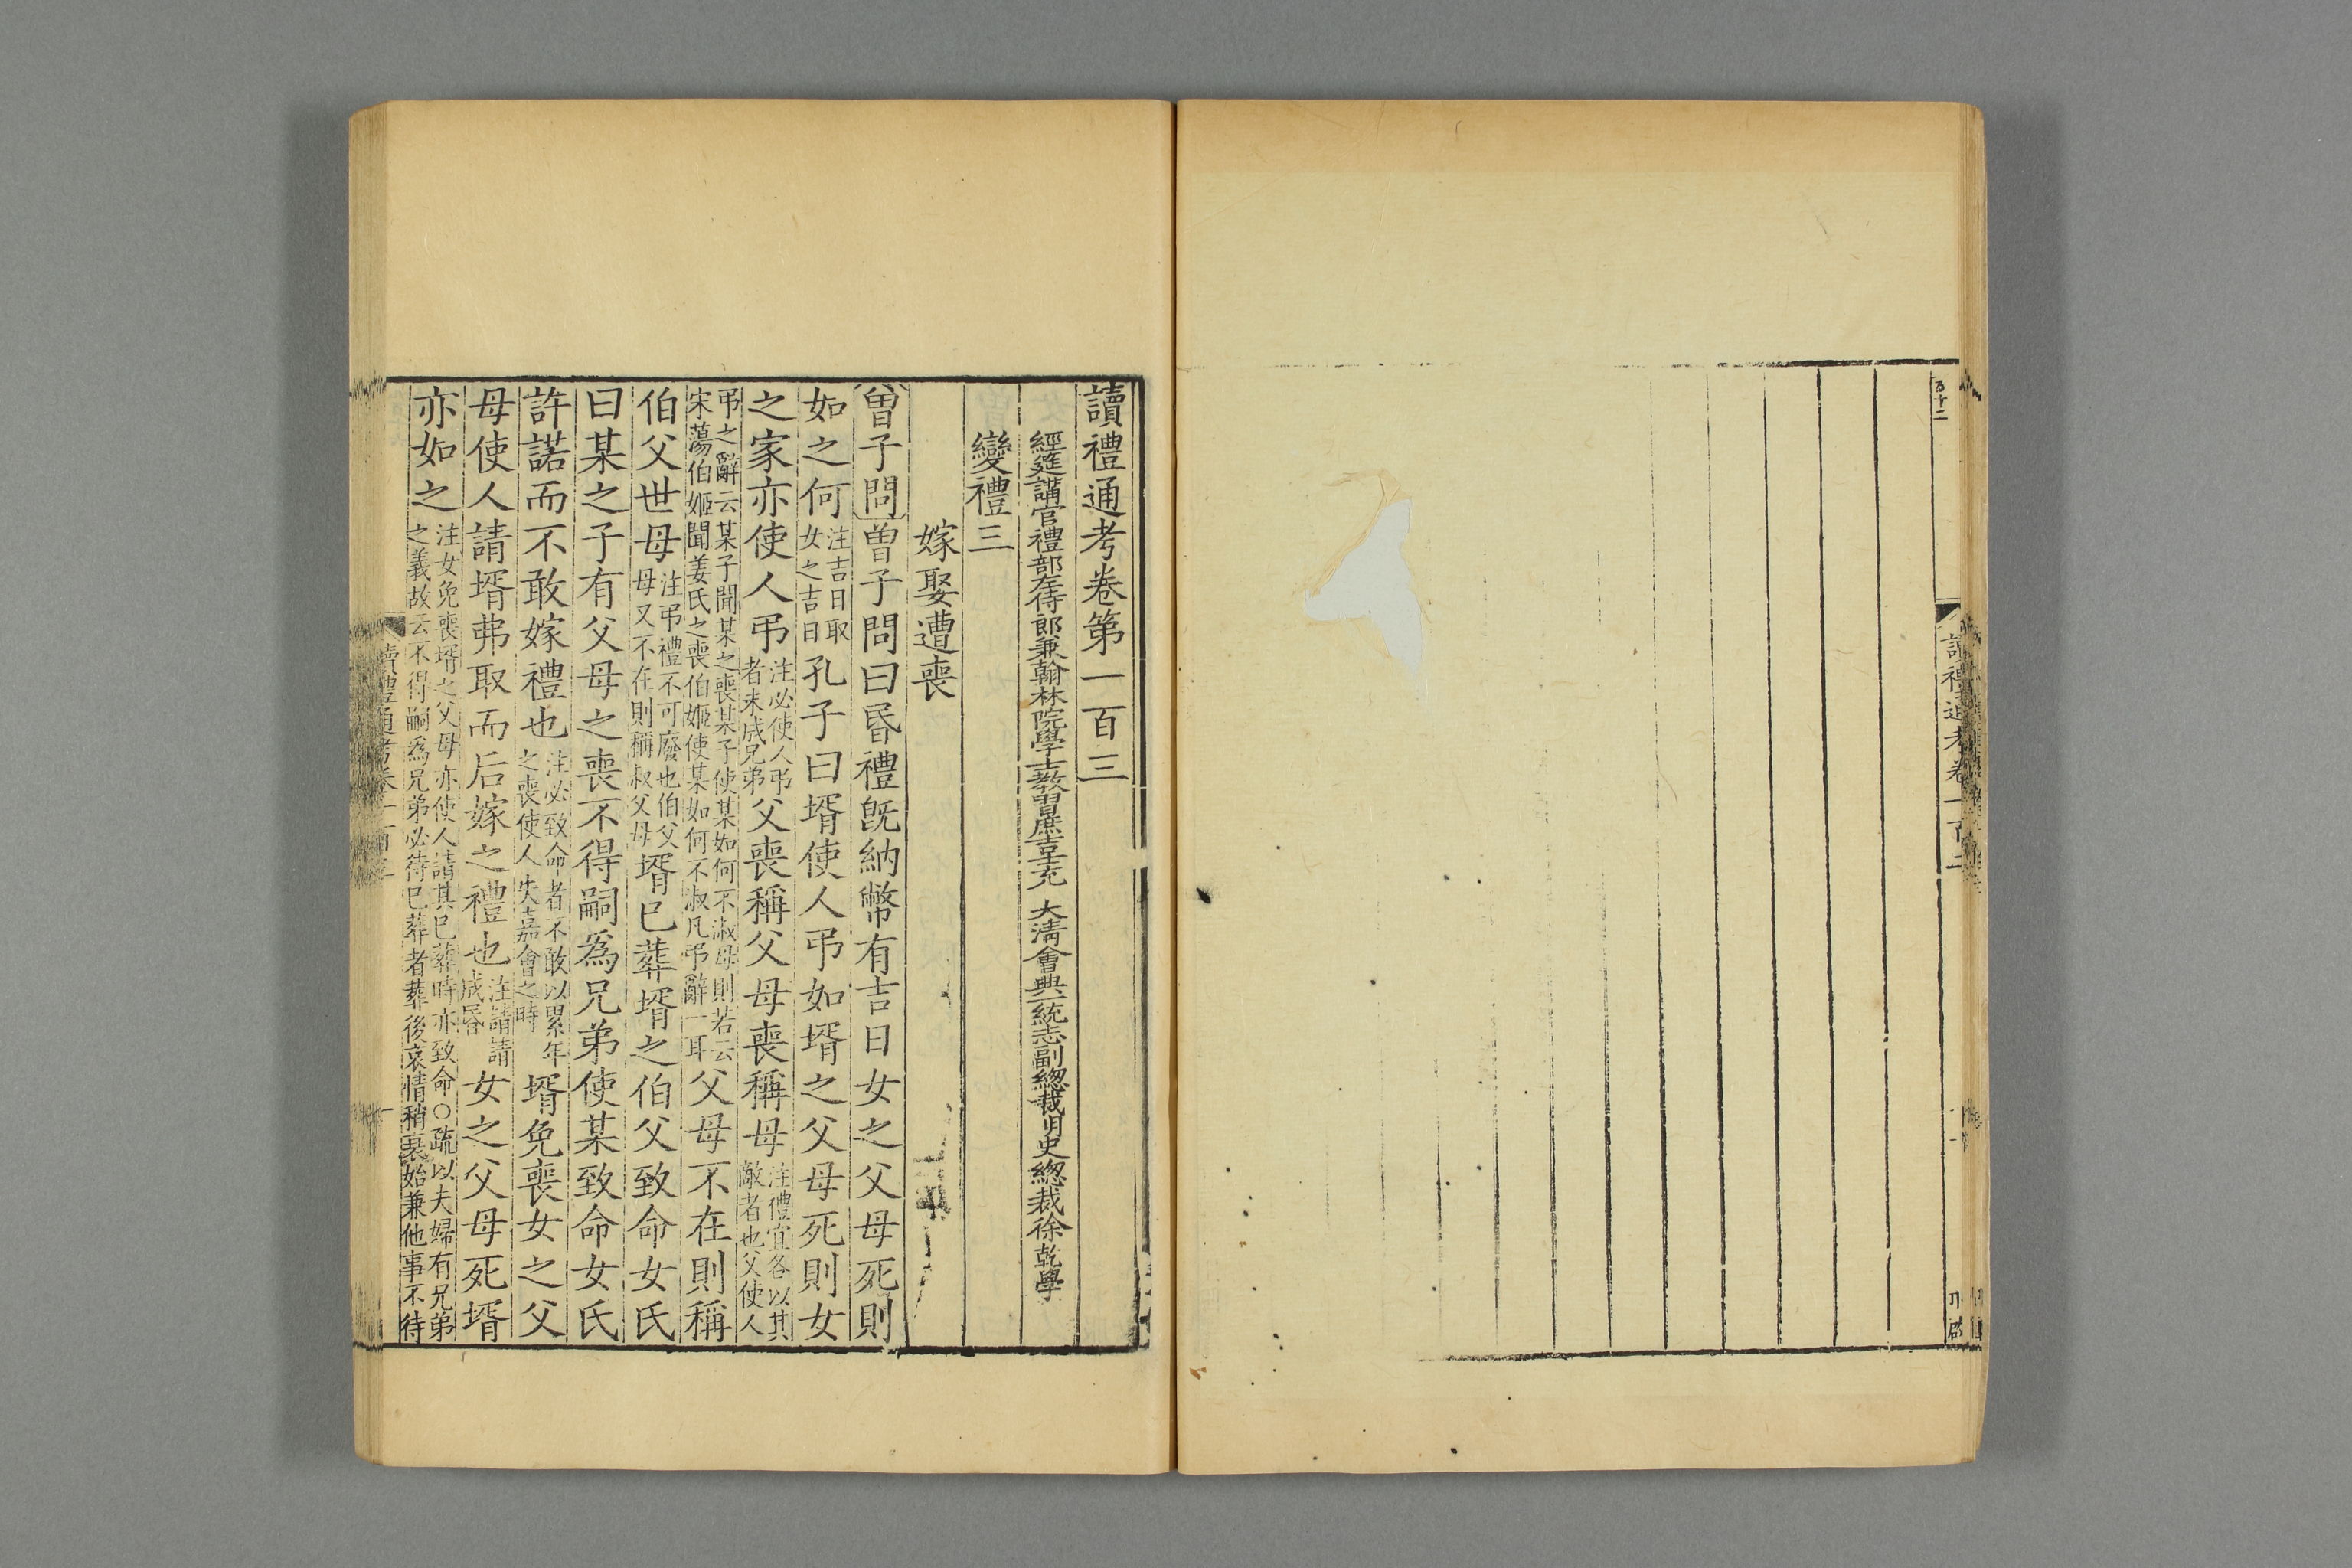 讀禮通考卷第一百三
經筵講官禮部左侍郎兼翰林院學士教習庶吉士充 大淸會典一統志副總裁明史總裁徐乾學
變禮三
嫁娶遭喪
曾子問曾子問曰昏禮旣納幣有吉日女之父母死則
如之何注吉日取女之吉日孔子曰壻使人弔如壻之父母死則女
之家亦使人弔注必使人弔者未成兄弟父喪稱父母喪稱母注禮宜各以其敵者也父使人
弔之辭云某子聞某之喪某子使某如何不淑母則若云宋蕩伯姬聞姜氏之喪伯姬使某如何不淑凡弔辭一耳父母不在則稱
伯父世母注弔禮不可廢也伯父母又不在則稱叔父母壻已葬壻之伯父致命女氏
曰某之子有父母之喪不得嗣爲兄弟使某致命女氏
許諾而不敢嫁禮也注必致命者不敢以累年之喪使人失嘉會之時壻免喪女之父
母使人請壻弗取而后嫁之禮也注請請成昏女之父母死壻
亦如之注女免喪壻之父母亦使人請其已葬時亦致命○疏以夫婦有兄弟之義故云不得嗣爲兄弟必待已葬者葬後哀情稍衰始兼他事不待
讀禮通考卷一百三
一